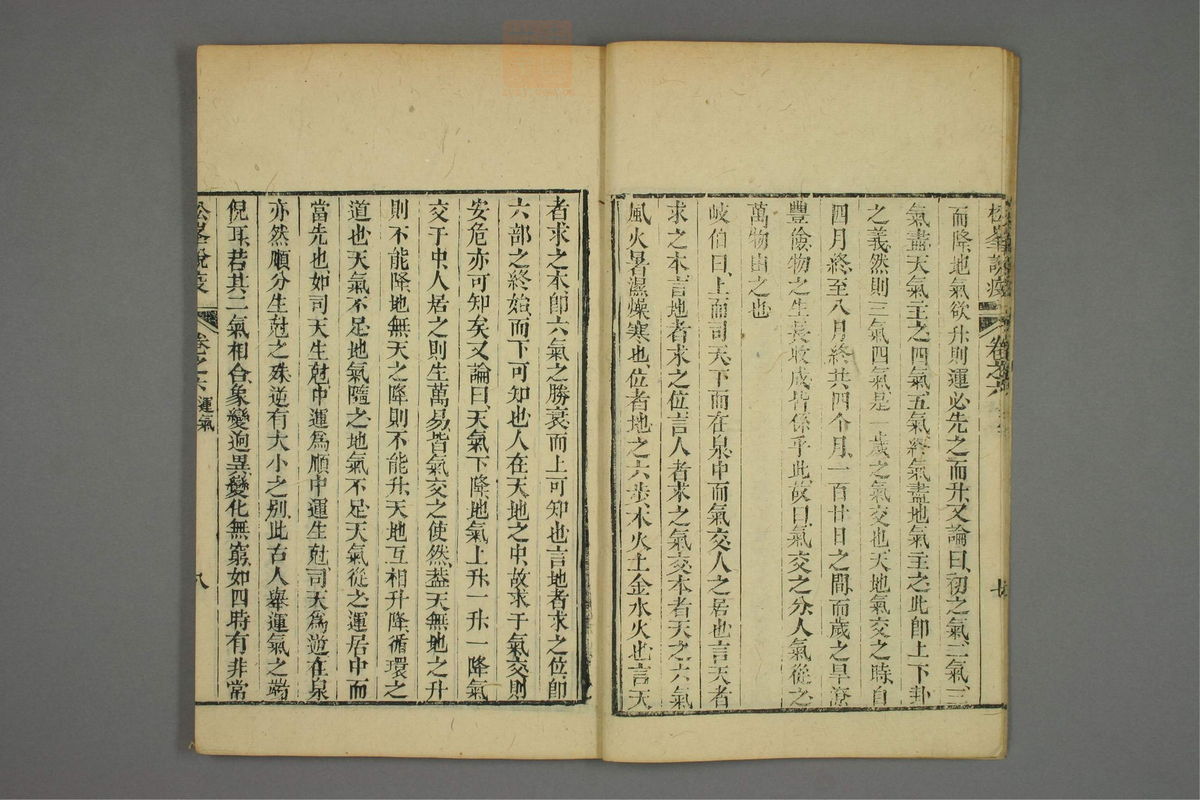 松峯說疫 卷之六 七
而降地氣欲升則運必先之而升又論曰初之氣二氣三
氣盡天氣主之四氣五氣終氣盡地氣主之此即上下卦
之義然則三氣四氣是一歲之氣交也天地氣交之時自
四月終至八月終共四个月一百廿日之間而歲之旱潦
豐儉物之生長收成皆係乎此故曰氣交之分人氣從之
萬物由之也
岐伯曰上而司天下而在泉中而氣交人之居也言天者
求之本言地者求之位言人者求之氣交本者天之六氣
風火暑濕燥寒也位者地之六步木火土金水火也言天
者求之本卽六氣之勝衰而上可知也言地者求之位卽
六部之終始而下可知也人在天地之中故求于氣交則
安危亦可知矣又論曰天氣下降地氣上升一升一降氣
交于中人居之則生萬易皆氣交之使然蓋天無地之升
則不能降地無天之降則不能升天地互相升降循環之
道也天氣不足地氣隨之地氣不足天氣從之運居中而
當先也如司天生尅中運爲順中運生尅司天爲逆在泉
亦然順分生尅之殊逆有大小之别此古人舉運氣之端
倪耳若其二氣相合象變迥異變化無窮如四時有非常
松峯說疫 卷之六 運氣 八